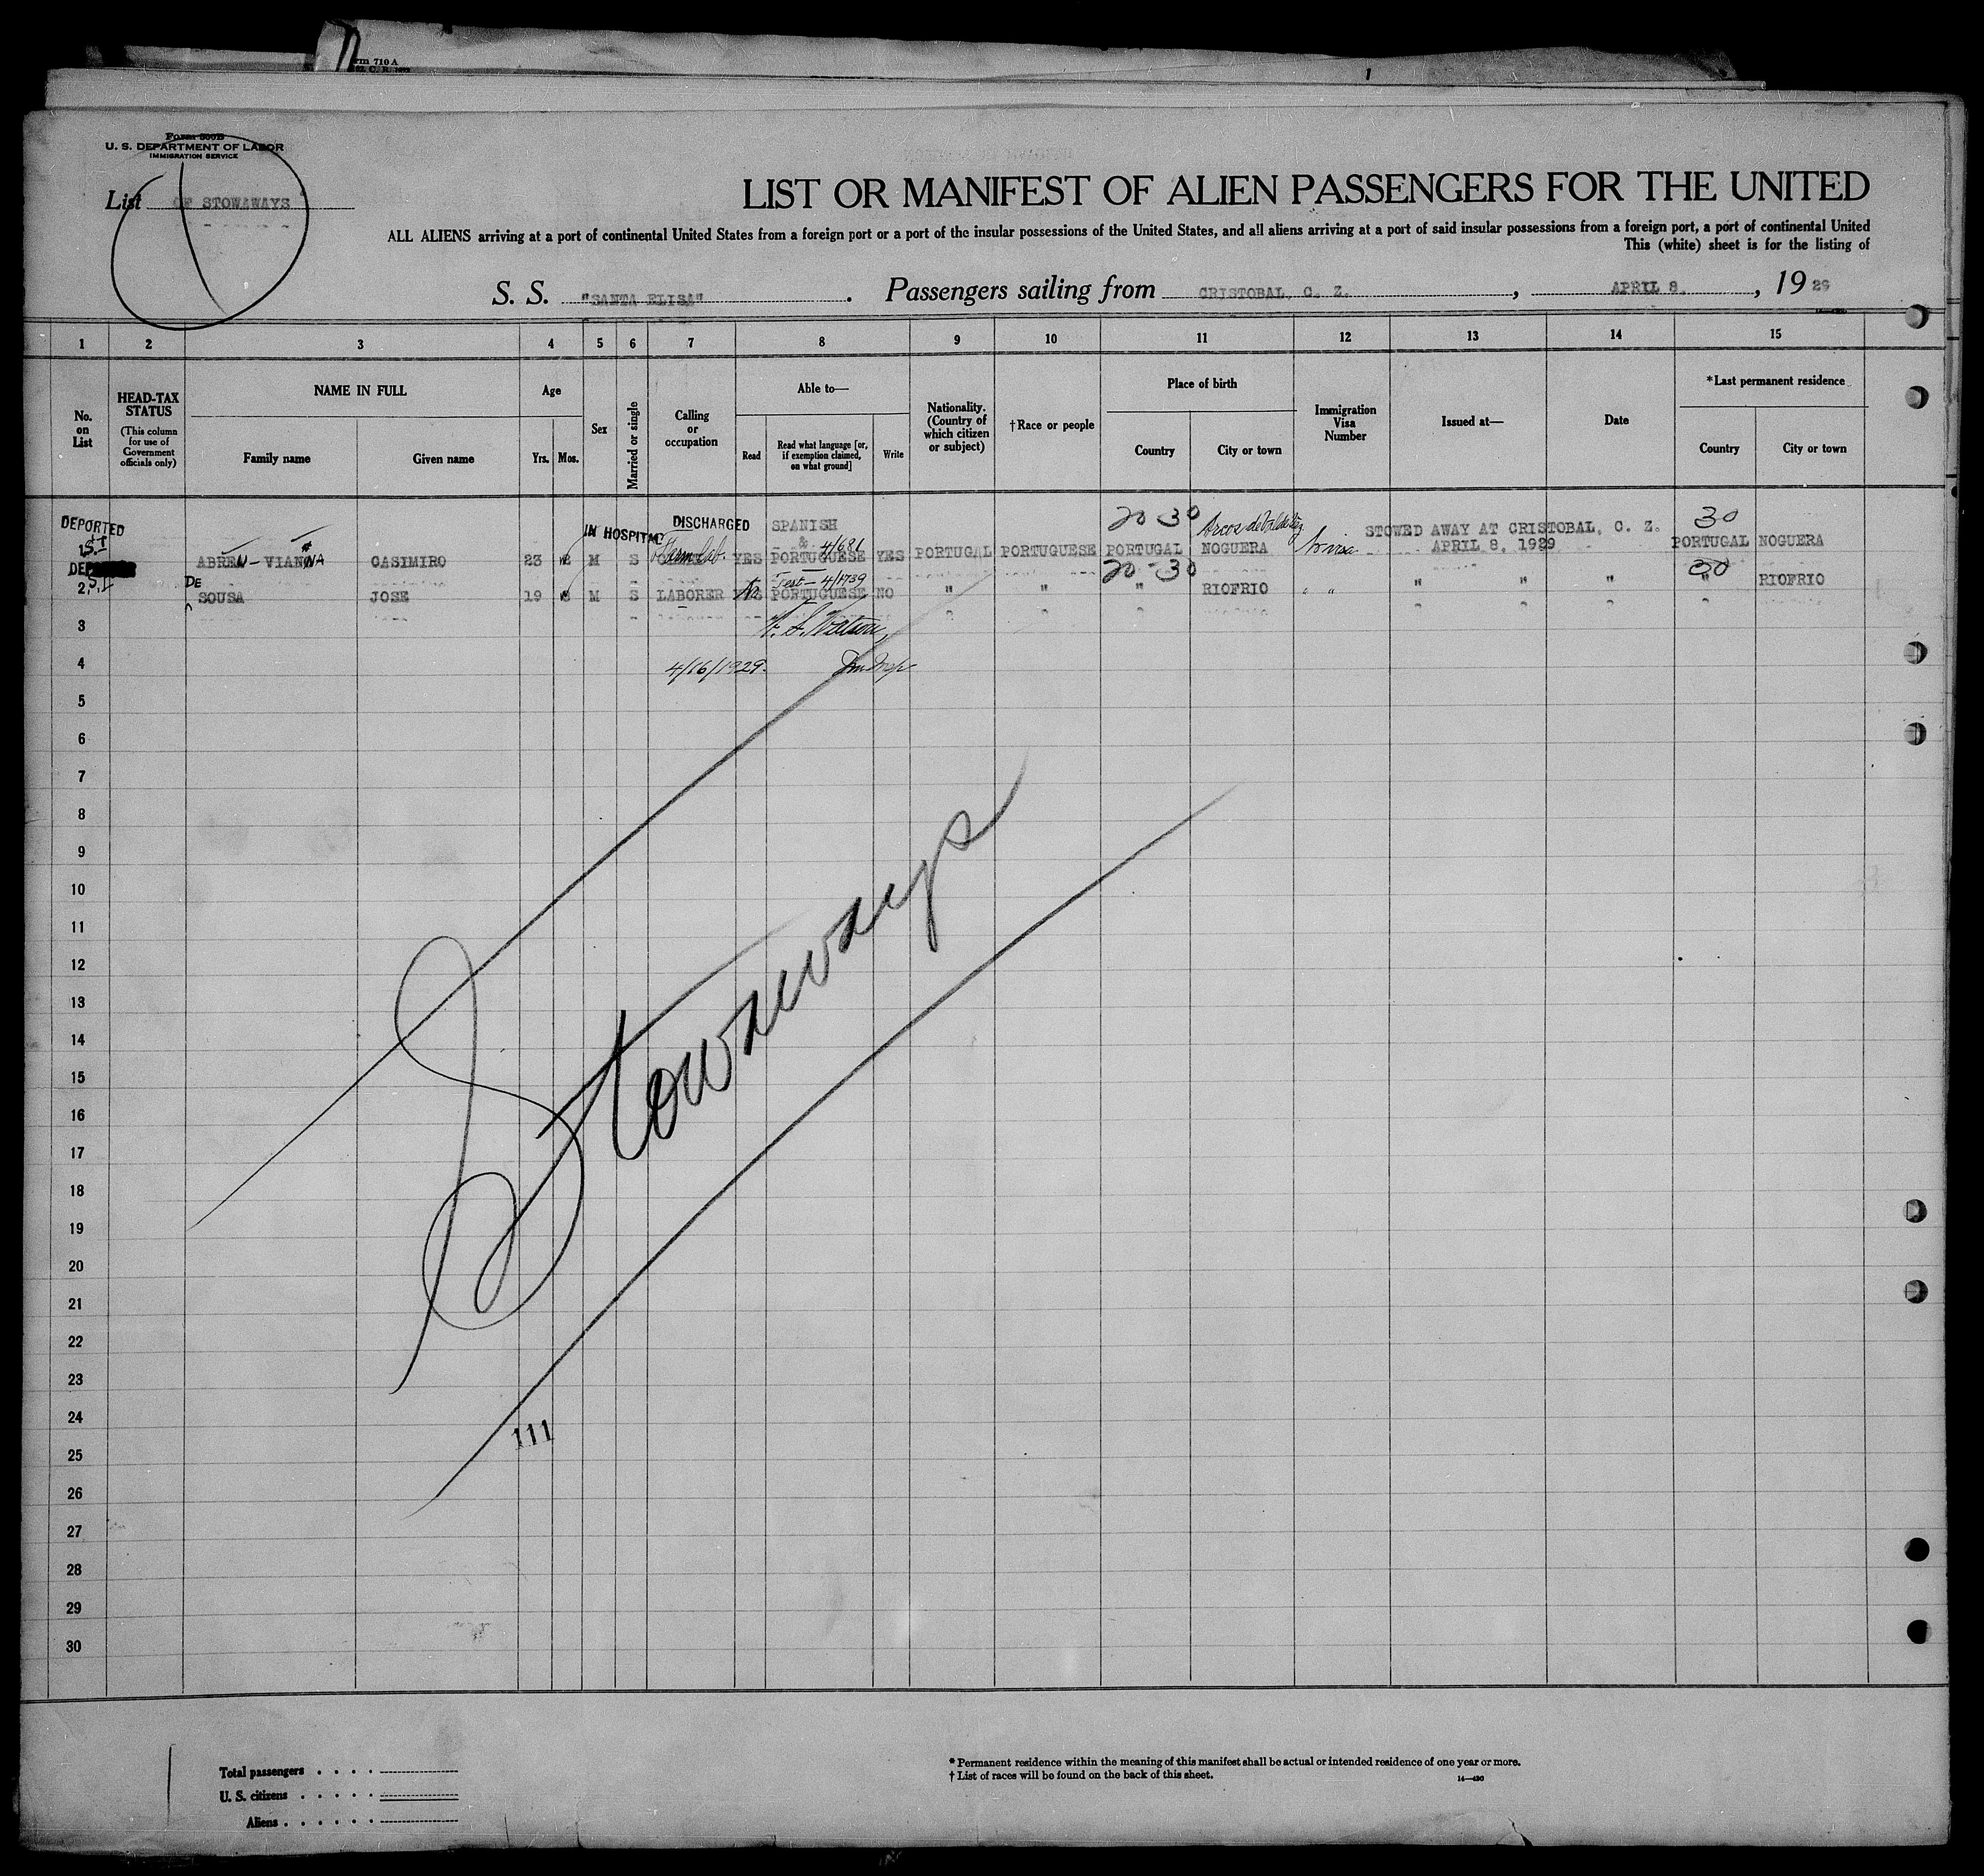 rm 710 A
Form 500B
U. S. DEPARTMENT OF LABOR
IMMIGRATION SERVICE
List OF STOWAWAYS
LIST OR MANIFEST OF ALIEN PASSENGERS FOR THE UNITED
ALL ALIENS arriving at a port of continental United States from a foreign port or a port of the insular possessions of the United States, and all aliens arriving at a port of said insular possessions from a foreign port, a port of continental United
This (white) sheet is for the listing of
S. S. "SANTA ELISA". Passengers sailing from CRISTOBAL, C. Z., APRIL 8, 1929
1 2 3 4 5 6 7 8 9 10 11 12 13 14 15
No. on List
HEAD-TAX STATUS
(This column for use of Government officials only)
NAME IN FULL
Family name
Given name
Age
Yrs. Mos.
Sex
Married or single
Calling or occupation
Able to—
Read
Read what language [or, if exemption claimed, on what ground]
Write
Nationality. (Country of which citizen or subject)
†Race or people
Place of birth
Country
City or town
Immigration Visa Number
Issued at—
Date
*Last permanent residence
Country
City or town
DEPORTED IN HOSPITAL DISCHARGED SPANISH 20 30 STOWED AWAY AT CRISTOBAL, C. Z. 30
1 S.I ABREN-VIANNA CASIMIRO 23 M S Farm Lab. YES & PORTUGUESE 4/681 YES PORTUGAL PORTUGUESE PORTUGAL NOGUERA APRIL 8, 1929 PORTUGAL NOGUERA
DE Test- 4/1739 20-30 30
2 S.I SOUSA JOSE 19 M S LABORER No PORTUGUESE NO " " " RIOFRIO " " " " " RIOFRIO
3 Watson
4 4/16/1929. Imm Insp
5
6
7
8
9
10
11
12
13
14
15
16
17
18
19
20
21
22
23
24
25
26
27
28
29
30
Stowaways
111
Total passengers
U. S. citizens
Aliens
* Permanent residence within the meaning of this manifest shall be actual or intended residence of one year or more.
† List of races will be found on the back of this sheet.
14—430